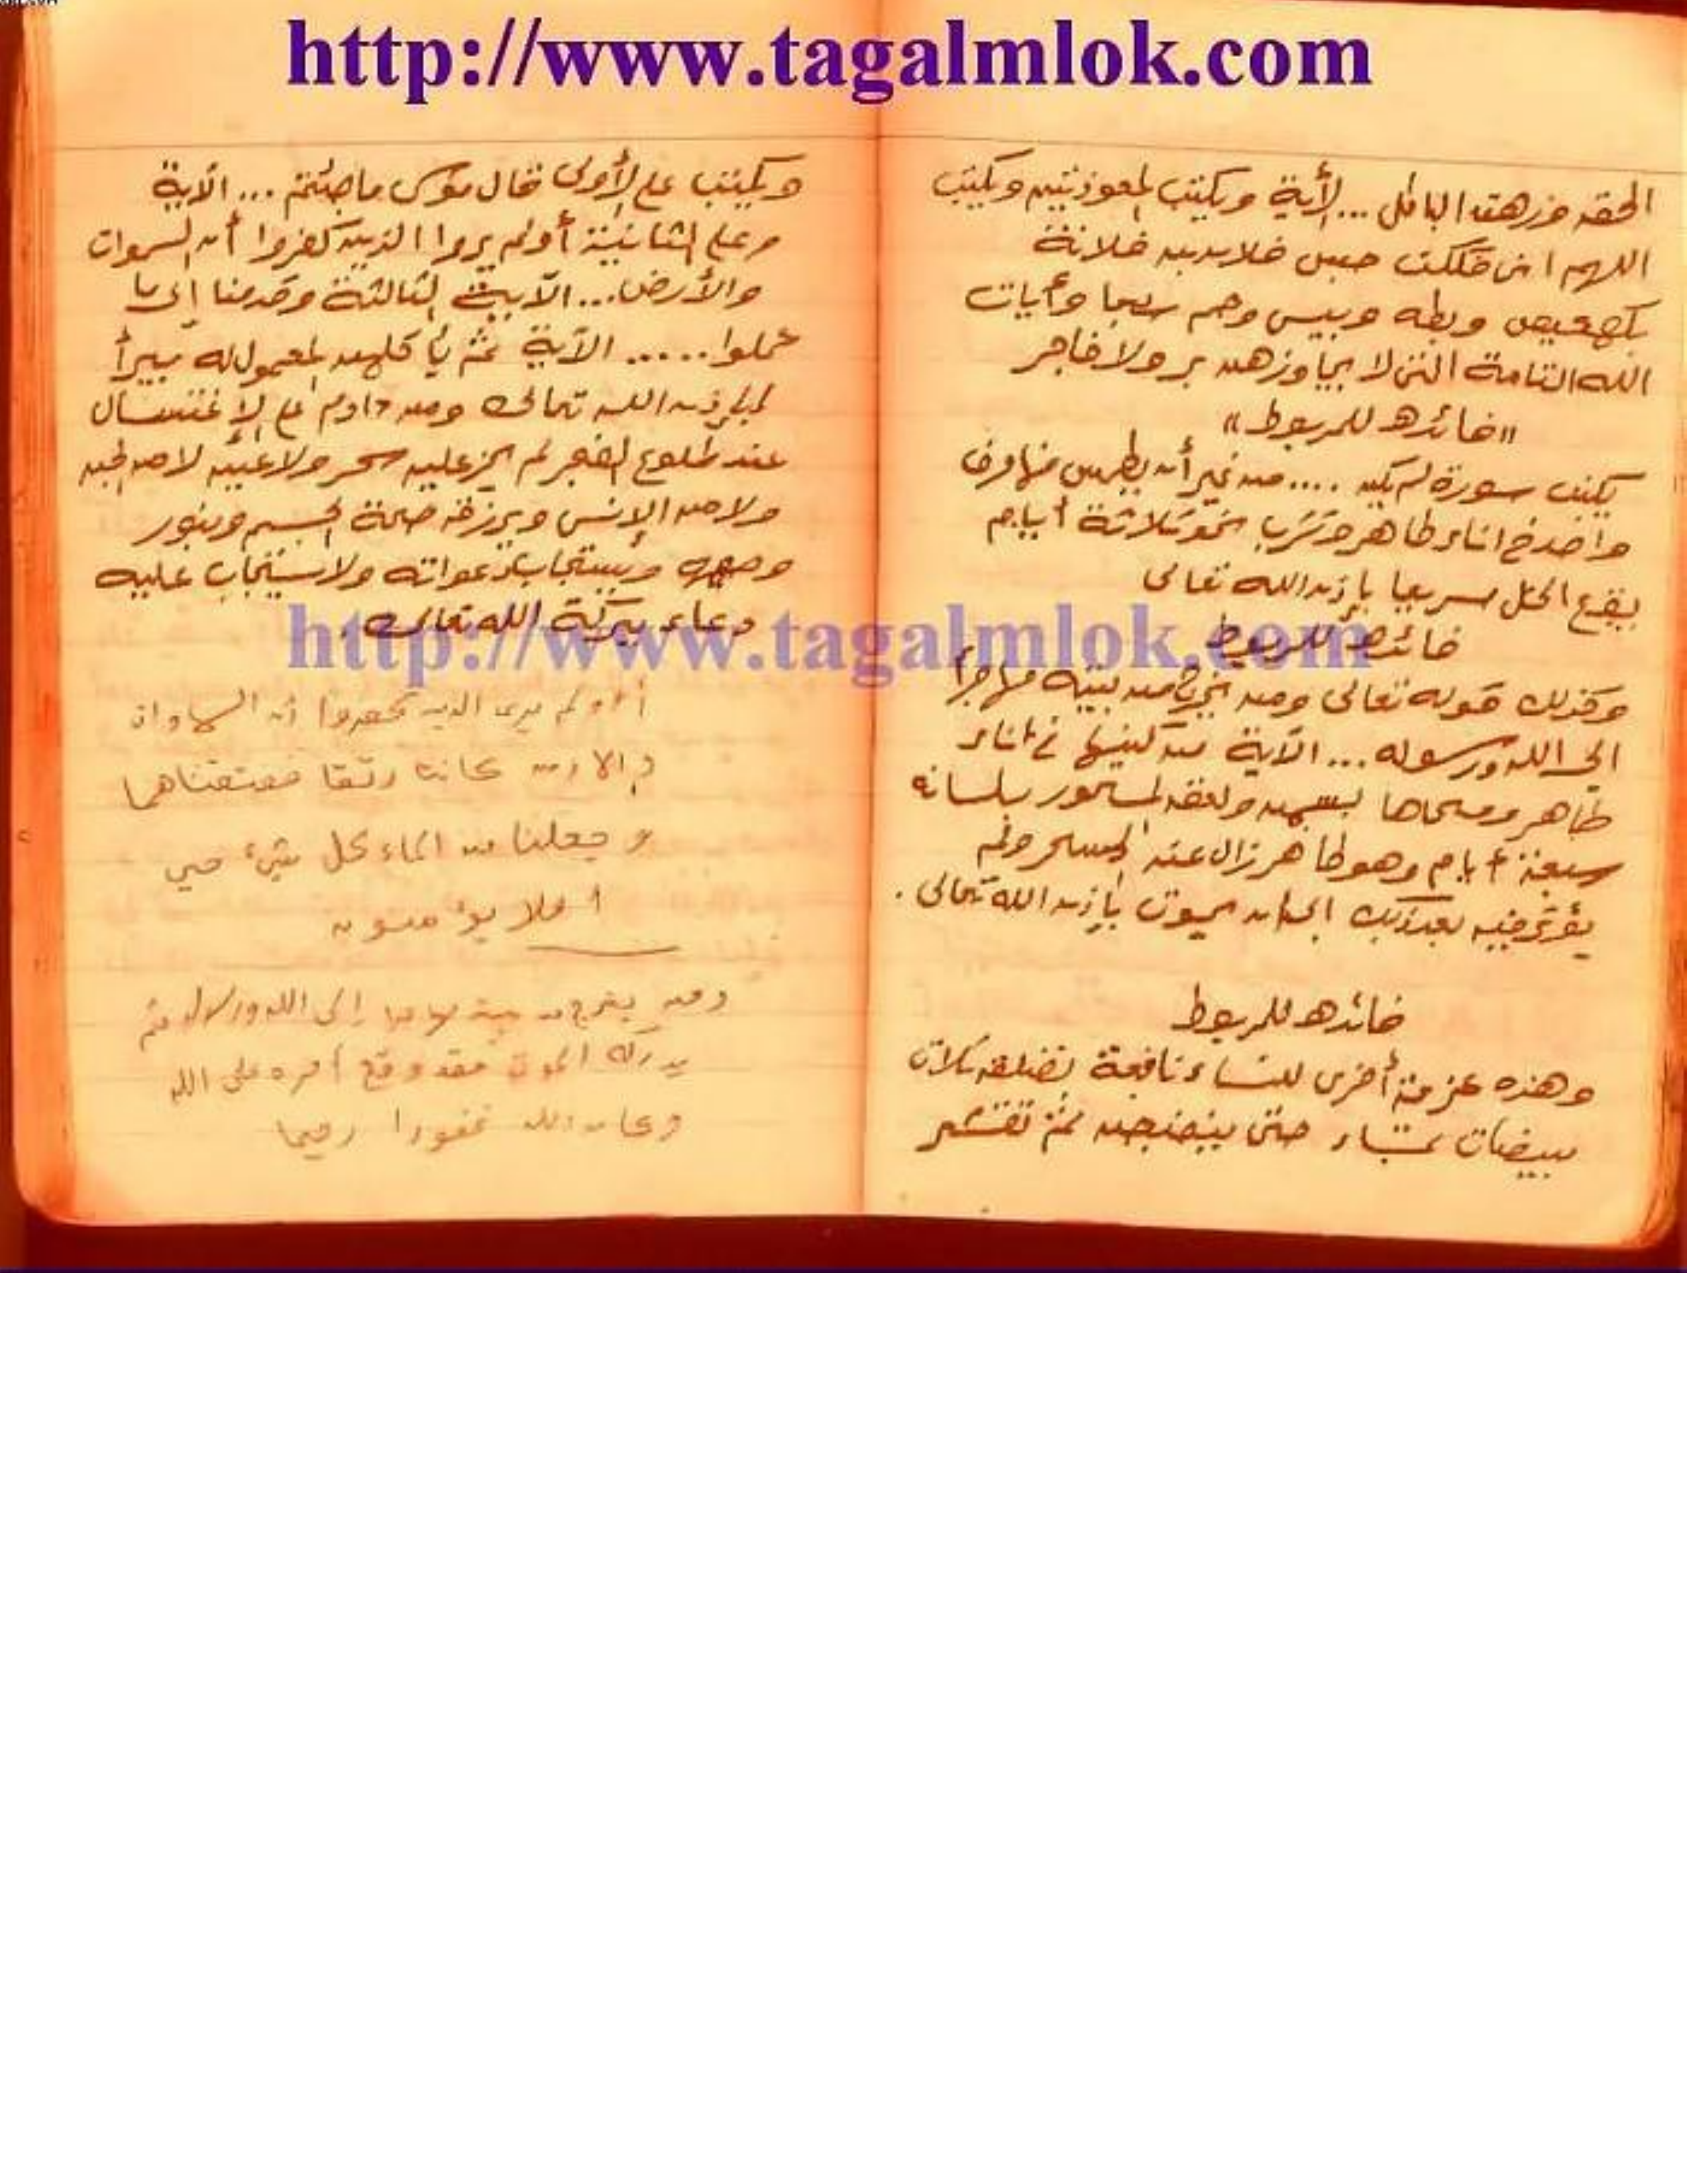 http://www.tagalmlok.com
الحق وزهق الباطل ... الأية ويكتب المعوذتين ويكتب
اللهم انى فككت حبس فلان بن فلانة
بكهيعص وبطه وبيس وحم سبعا وبأيات
الله التامة التى لا يجاوزهن بر ولا فاجر
"فائده للمربوط"
يكتب سورة لم يكن .... من غير أن يطمس منها حرف
واحد فى اناء طاهر وتشرب نحو ثلاثة أيام
يقع الحل سريعا بإذن الله تعالى
فائده للمربوط
وكذلك قوله تعالى ومن يخرج من بيته مهاجرا
الى الله ورسوله ... الآية من كتبها فى اناء
طاهر ومحاها ولعقه المسحور بلسانه
سبعة أيام وهو طاهر زال عنه السحر ولم
يؤثر فيه بعد ذلك الى ان يموت بإذن الله تعالى .
فائده للمربوط
وهذه عزمة أخرى للنساء نافعة ثلاث
بيضات حتى ينضجن ثم تقشر
ويكتب على الأولى قال موسى ما جئتم ... الآية
وعلى الثانية أولم يروا الذين كفروا أن السموات
والأرض ... الآية الثالثة وقدمنا إلى ما
عملوا ..... الآية ثم يأكلهن المعمول له يبرأ
بإذن الله تعالى ومن داوم على الإغتسال
عند طلوع الفجر لم عليه سحر ولا غيره لا من الجن
ولا من الإنس ويرزق صحة الجسم وينور
وجهه ويستجاب دعواته ولا يستجاب عليه
دعاء ببركة الله تعالى .
http://www.tagalmlok.com
أولم يرى الذين كفروا أن السماوات
والارض كانتا رتقا ففتقناهما
وجعلنا من الماء كل شىء حي
أفلا يؤمنون
ومن يخرج من بيته مهاجرا إلى الله ورسوله ثم
يدركه الموت فقد وقع أجره على الله
وكان الله غفورا رحيما